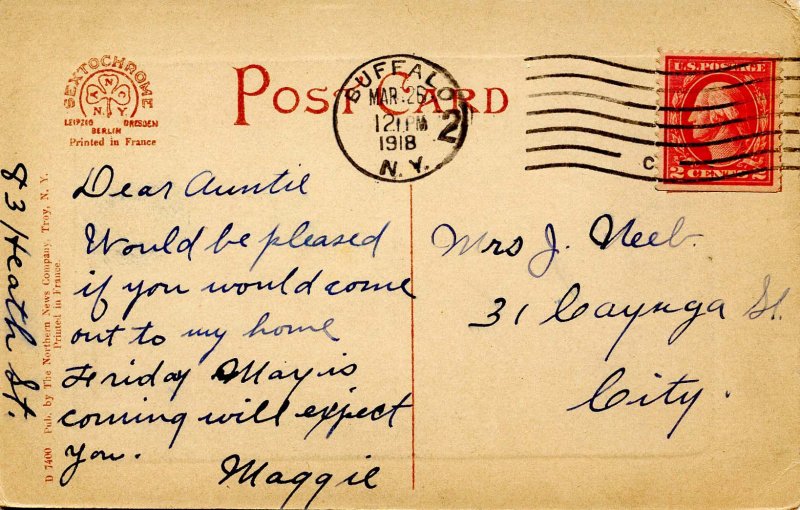 SEXTOCHROME
A N C O
N.Y.
LEIPZIG DRESDEN
BERLIN
Printed in France
POST CARD
BUFFALO
MAR 26
12 1 PM
1918
N.Y.
2
C
U.S. POSTAGE
2 CENTS 2
Dear Auntie
Would be pleased
if you would come
out to my home
Friday May is
coming will expect
you.
Maggie
83 Heath St.
D 7400 Pub. by The Northern News Company, Troy, N. Y.
Printed in France.
Mrs J. Neeb.
31 Cayuga St.
City.